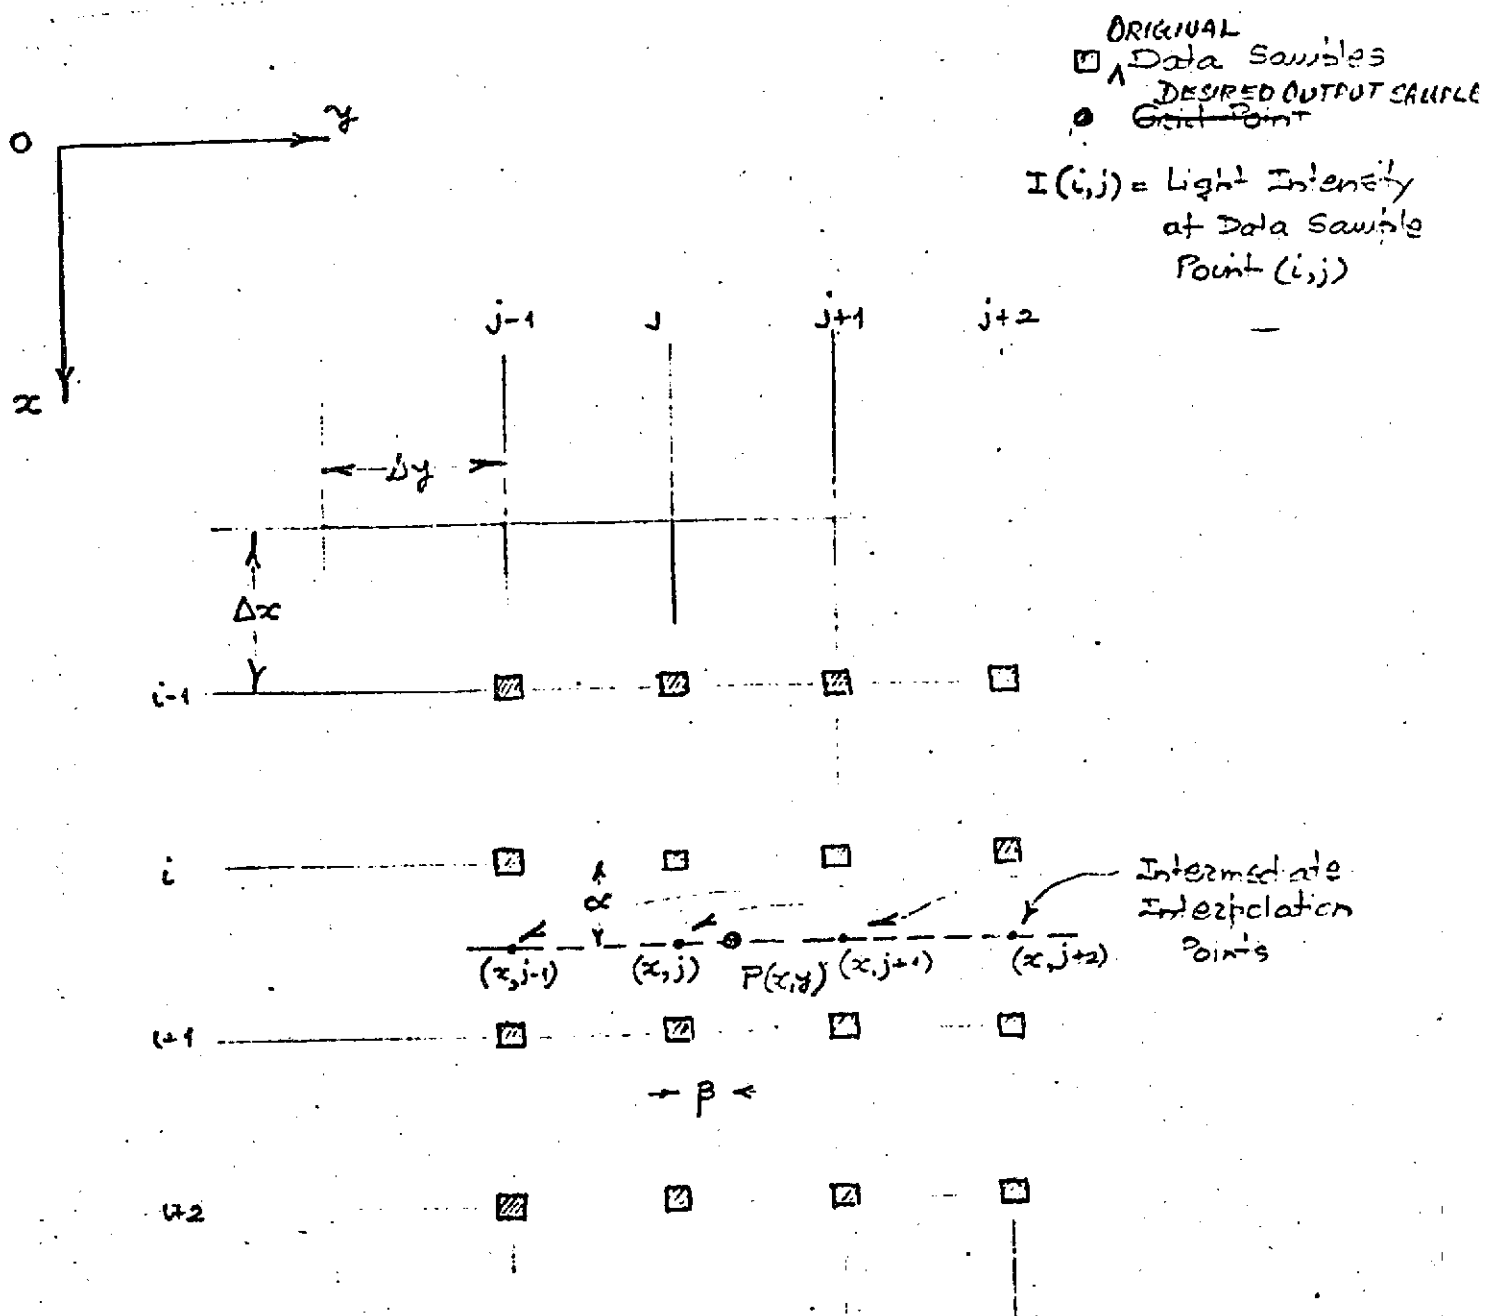 ORIGINAL
Data Samples
DESIRED OUTPUT SAMPLE
Grid Point
I(i,j) = Light Intensity
at Data Sample
Point (i,j)
O
y
x
j-1 j j+1 j+2
Δy
Δx
i-1
i
α
Intermediate
Interpolation
Points
(x,j-1) (x,j) P(x,y) (x,j+1) (x,j+2)
i+1
β
i+2